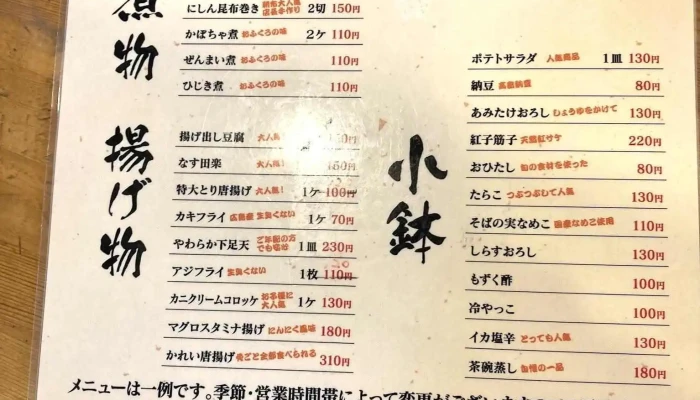 煮物
にしん昆布巻き 2切 150円
かぼちゃ煮 おふくろの味 2ケ 110円
ぜんまい煮 おふくろの味 110円
ひじき煮 おふくろの味 110円
揚げ物
揚げ出し豆腐 大人気!
なす田楽 大人気!
特大とり唐揚げ 大人気! 1ケ 100円
カキフライ 広島産 生臭くない 1ケ 70円
やわらか下足天 ご年配の方でも 1皿 230円
アジフライ 生臭くない 1枚 110円
カニクリームコロッケ お子様に大人気 1ケ 130円
マグロスタミナ揚げ にんにく風味 180円
かれい唐揚げ 骨ごと全部食べられる 310円
小鉢
ポテトサラダ 人気商品 1皿 130円
納豆 80円
あみたけおろし しょうゆをかけて 130円
紅子筋子 天然紅サケ 220円
おひたし 旬の食材を使った 80円
たらこ つぶつぶして人気 130円
そばの実なめこ 国産なめこ使用 110円
しらすおろし 130円
もずく酢 100円
冷やっこ 100円
イカ塩辛 とっても人気 130円
茶碗蒸し 自慢の一品 180円
メニューは一例です。季節・営業時間帯によって変更がございます